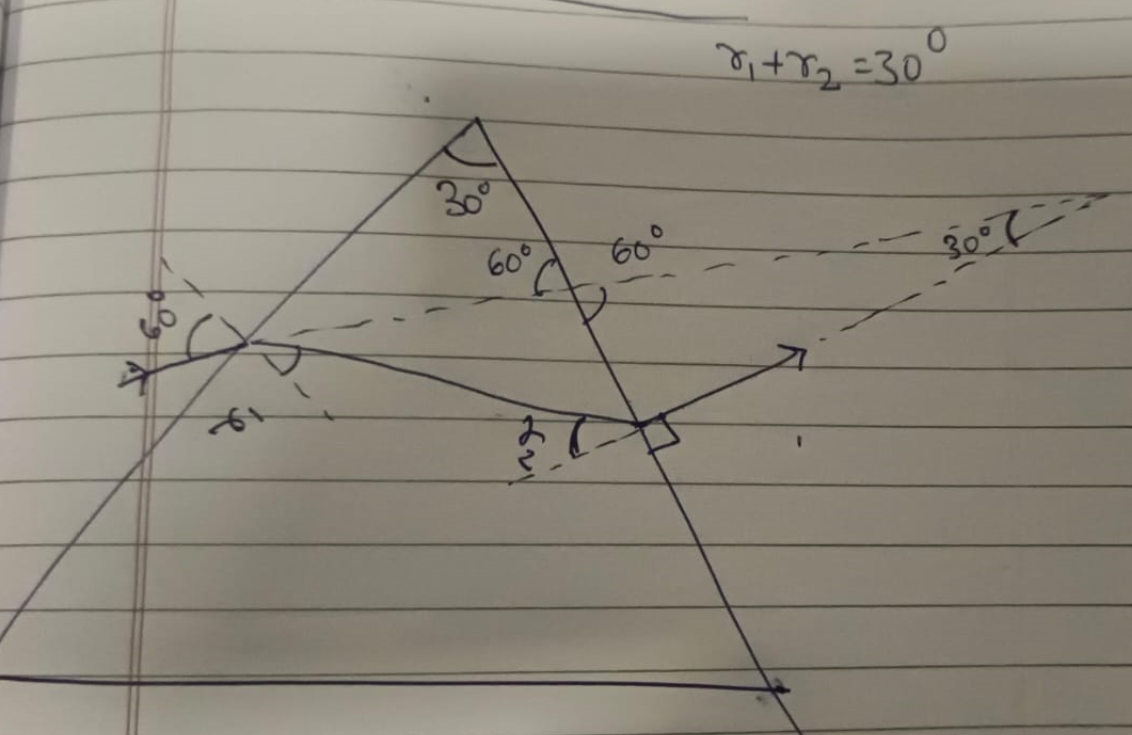 r₁+r₂=30⁰
30⁰
60⁰
60⁰
30⁰
60⁰
r₁
r₂